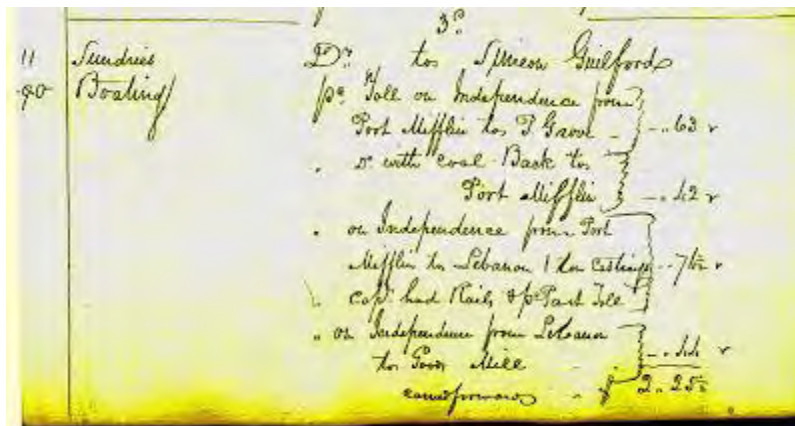 3d
11 Sundries Dr to Simeon Guilford
90 Boating pd Toll on Independence from
Port Mifflin to P Grove - .. 63
" Do with coal Back to
Port Mifflin - .. 42
" on Independence from Port
Mifflin to Lebanon 1 ton castings .. 76
" Capt had Rails & pd Part Toll
" on Independence from Lebanon
to Mill - .. 44
carried forward $ 2.. 25